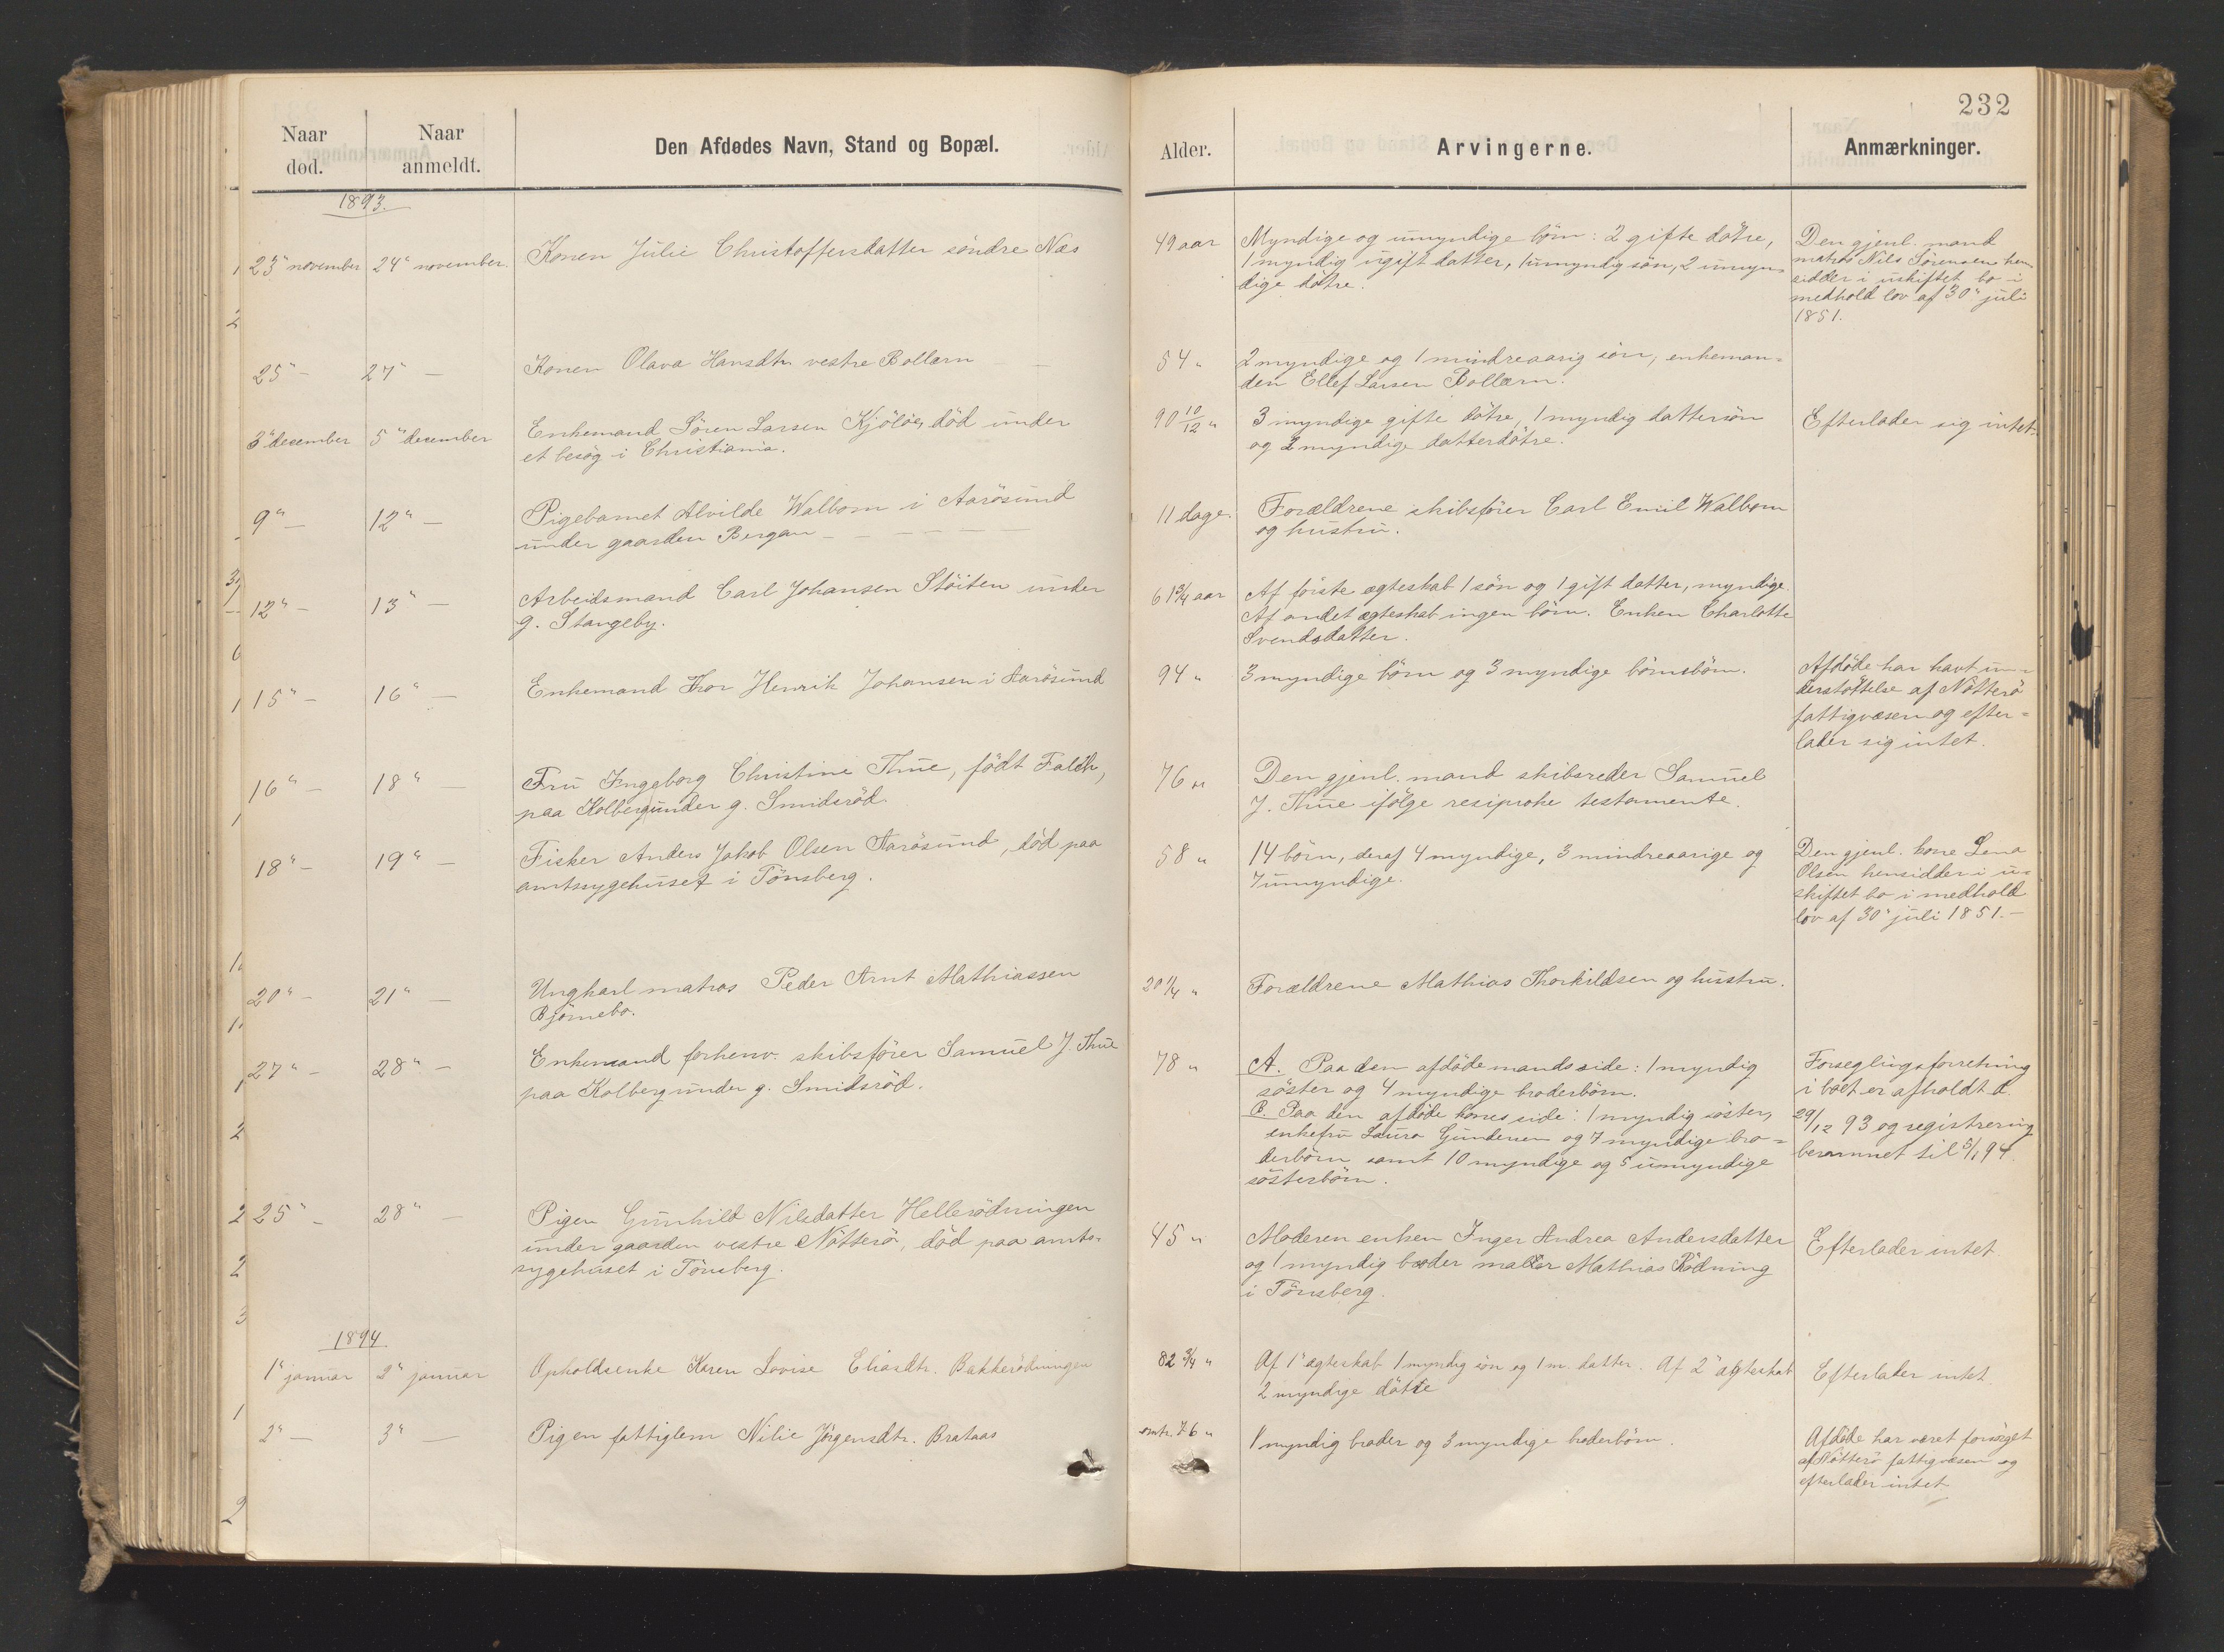 232
Naar død.
Naar anmeldt.
Den Afdødes Navn, Stand og Bopæl.
Alder.
Arvingerne.
Anmærkninger.
1893.
23" november
24" november.
Konen Julie Christoffersdatter söndre Næs
49 aar
Myndige og umyndige börn: 2 gifte dötre,
1 myndig ugift datter, 1 umyndig sön, 2 umyn-
dige dötre.
Den gjenl. mand
matros Nils Sörensen hen-
sidder i uskiftet bo i
medhold lov af 30" juli
1851.
25" —
27" —
Konen Olava Hansdtr. vestre Bollærn
54 "
2 myndige og 1 mindreaarig sön, enkeman-
den Ellef Larsen Bollærn.
3" december
5" december
Enkemand Sören Larsen Kjölö, död under
et besög i Christiania.
90 10/12 "
3 myndige gifte dötre, 1 myndig dattersön
og 2 myndige datterdötre.
Efterlader sig intet.
9" —
12" —
Pigebarnet Alvilde Walbom i Aarösund
under gaarden Bergan — — — —
11 dage.
Forældrene skibsförer Carl Emil Walbom
og hustru.
12" —
13" —
Arbeidsmand Carl Johansen Stöiten under
g. Stangeby.
61 3/4 aar
Af förste ægteskab 1 sön og 1 gift datter, myndige.
Af andet ægteskab ingen börn. Enken Charlotte
Svendsdatter.
15" —
16" —
Enkemand Thor Henrik Johansen i Aarösund
94 "
3 myndige börn og 3 myndige börnebörn.
Afdöde har havt un-
derstöttelse af Nötterö
fattigvæsen og efter-
lader sig intet.
16" —
18" —
Fru Ingeborg Christine Thue, födt Falch,
paa Kolberg under g. Smidsröd.
76 "
Den gjenl. mand skibsreder Samuel
J. Thue ifölge resiproke testamente.
18" —
19" —
Fisker Anders Jakob Olsen Aarösund, död paa
amtssygehuset i Tönsberg.
58 "
14 börn, deraf 4 myndige, 3 mindreaarige og
7 umyndige.
Den gjenl. kone Lena
Olsen hensidder i u-
skiftet bo i medhold
lov af 30" juli 1851. —
20" —
21" —
Ungkarl matros Peder Arnt Mathiassen
Björnebo.
20 1/4 "
Forældrene Mathias Thorkildsen og hustru.
27" —
28" —
Enkemand forhenv. skibsförer Samuel J. Thue
paa Kolberg under g. Smidsröd.
78 "
A. Paa den afdöde mands side: 1 myndig
söster og 4 myndige broderbörn.
B. Paa den afdöde kones side: 1 myndig söster,
enkefru Laura Gundersen og 7 myndige bro-
derbörn samt 10 myndige og 5 umyndige
sösterbörn.
Forseglingsforretning
i boet er afholdt d.
29/12 93 og registrering
berammet til 5/1 94.
25" —
28" —
Pigen Gunhild Nilsdatter Hellerödningen
under gaarden vestre Nötterö, död paa amts-
sygehuset i Tönsberg.
45 "
Moderen enken Inger Andrea Andersdatter
og 1 myndig broder maler Mathias Rödning
i Tönsberg.
Efterlader intet.
1894
1" januar
2" januar
Opholdsenke Karen Lovise Eliasdtr. Bakkerödningen
82 3/4 "
Af 1" ægteskab 1 myndig sön og 1 m. datter. Af 2" ægteskab
2 myndige dötre
Efterlader intet.
2" —
3" —
Pigen fattiglem Nilie Jörgensdtr. Brataas
omtr. 76 "
1 myndig broder og 3 myndige broderbörn.
Afdöde har været forsörget
af Nötterö fattigvæsen og
efterlader intet